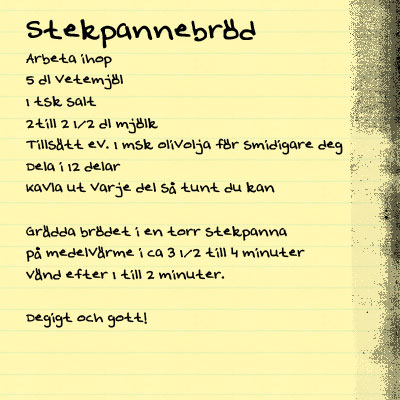 Stekpannebröd
Arbeta ihop
5 dl vetemjöl
1 tsk salt
2 till 2 1/2 dl mjölk
Tillsätt ev. 1 msk olivolja för smidigare deg
Dela i 12 delar
Kavla ut varje del så tunt du kan
Grädda brödet i en torr stekpanna
på medelvärme i ca 3 1/2 till 4 minuter
Vänd efter 1 till 2 minuter.
Degigt och gott!